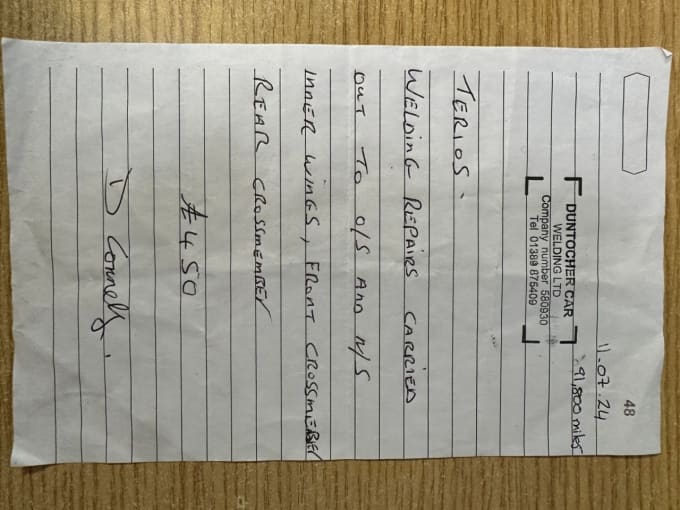 48
11.07.24
91,800 miles
DUNTOCHER CAR
WELDING LTD
Company number 580930
Tel 01389 876409
TERIOS.
WELDING REPAIRS CARRIED
OUT TO O/S AND N/S
INNER WINGS, FRONT CROSSMEMBER
REAR CROSSMEMBER
£450
D Connelly.